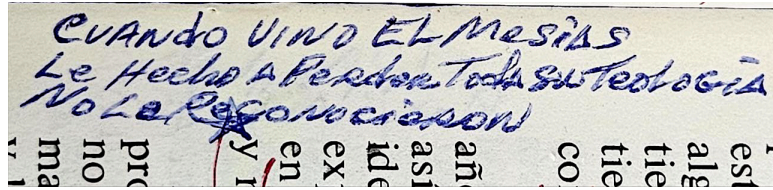 CUANDO VINO EL MESIAS
Le Hecho A Perder Toda su Teología
No Le Reconocieron
pro
no
ma
y
y
en
ex
ide
así
añ
co
tie
tie
alg
est